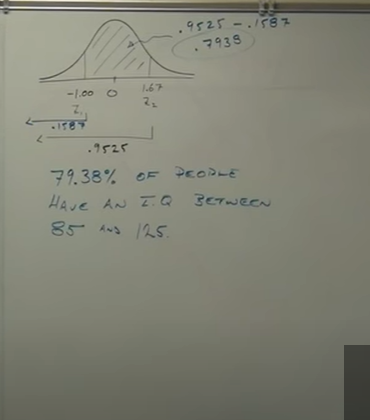 .9525 - .1587
.7938
-1.00 0 1.67
Z₁ Z₂
.1587
.9525
79.38% OF PEOPLE
HAVE AN I.Q BETWEEN
85 AND 125.